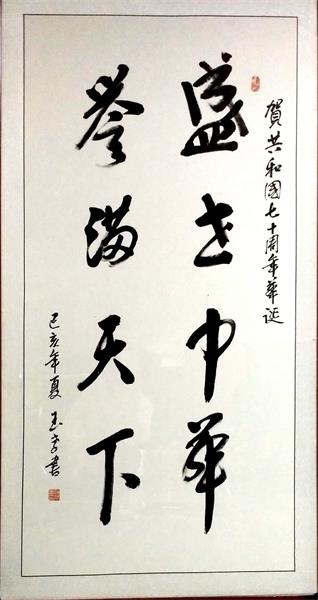 賀共和國七十周年華誕
盛世中華
譽滿天下
己亥年夏 玉字書